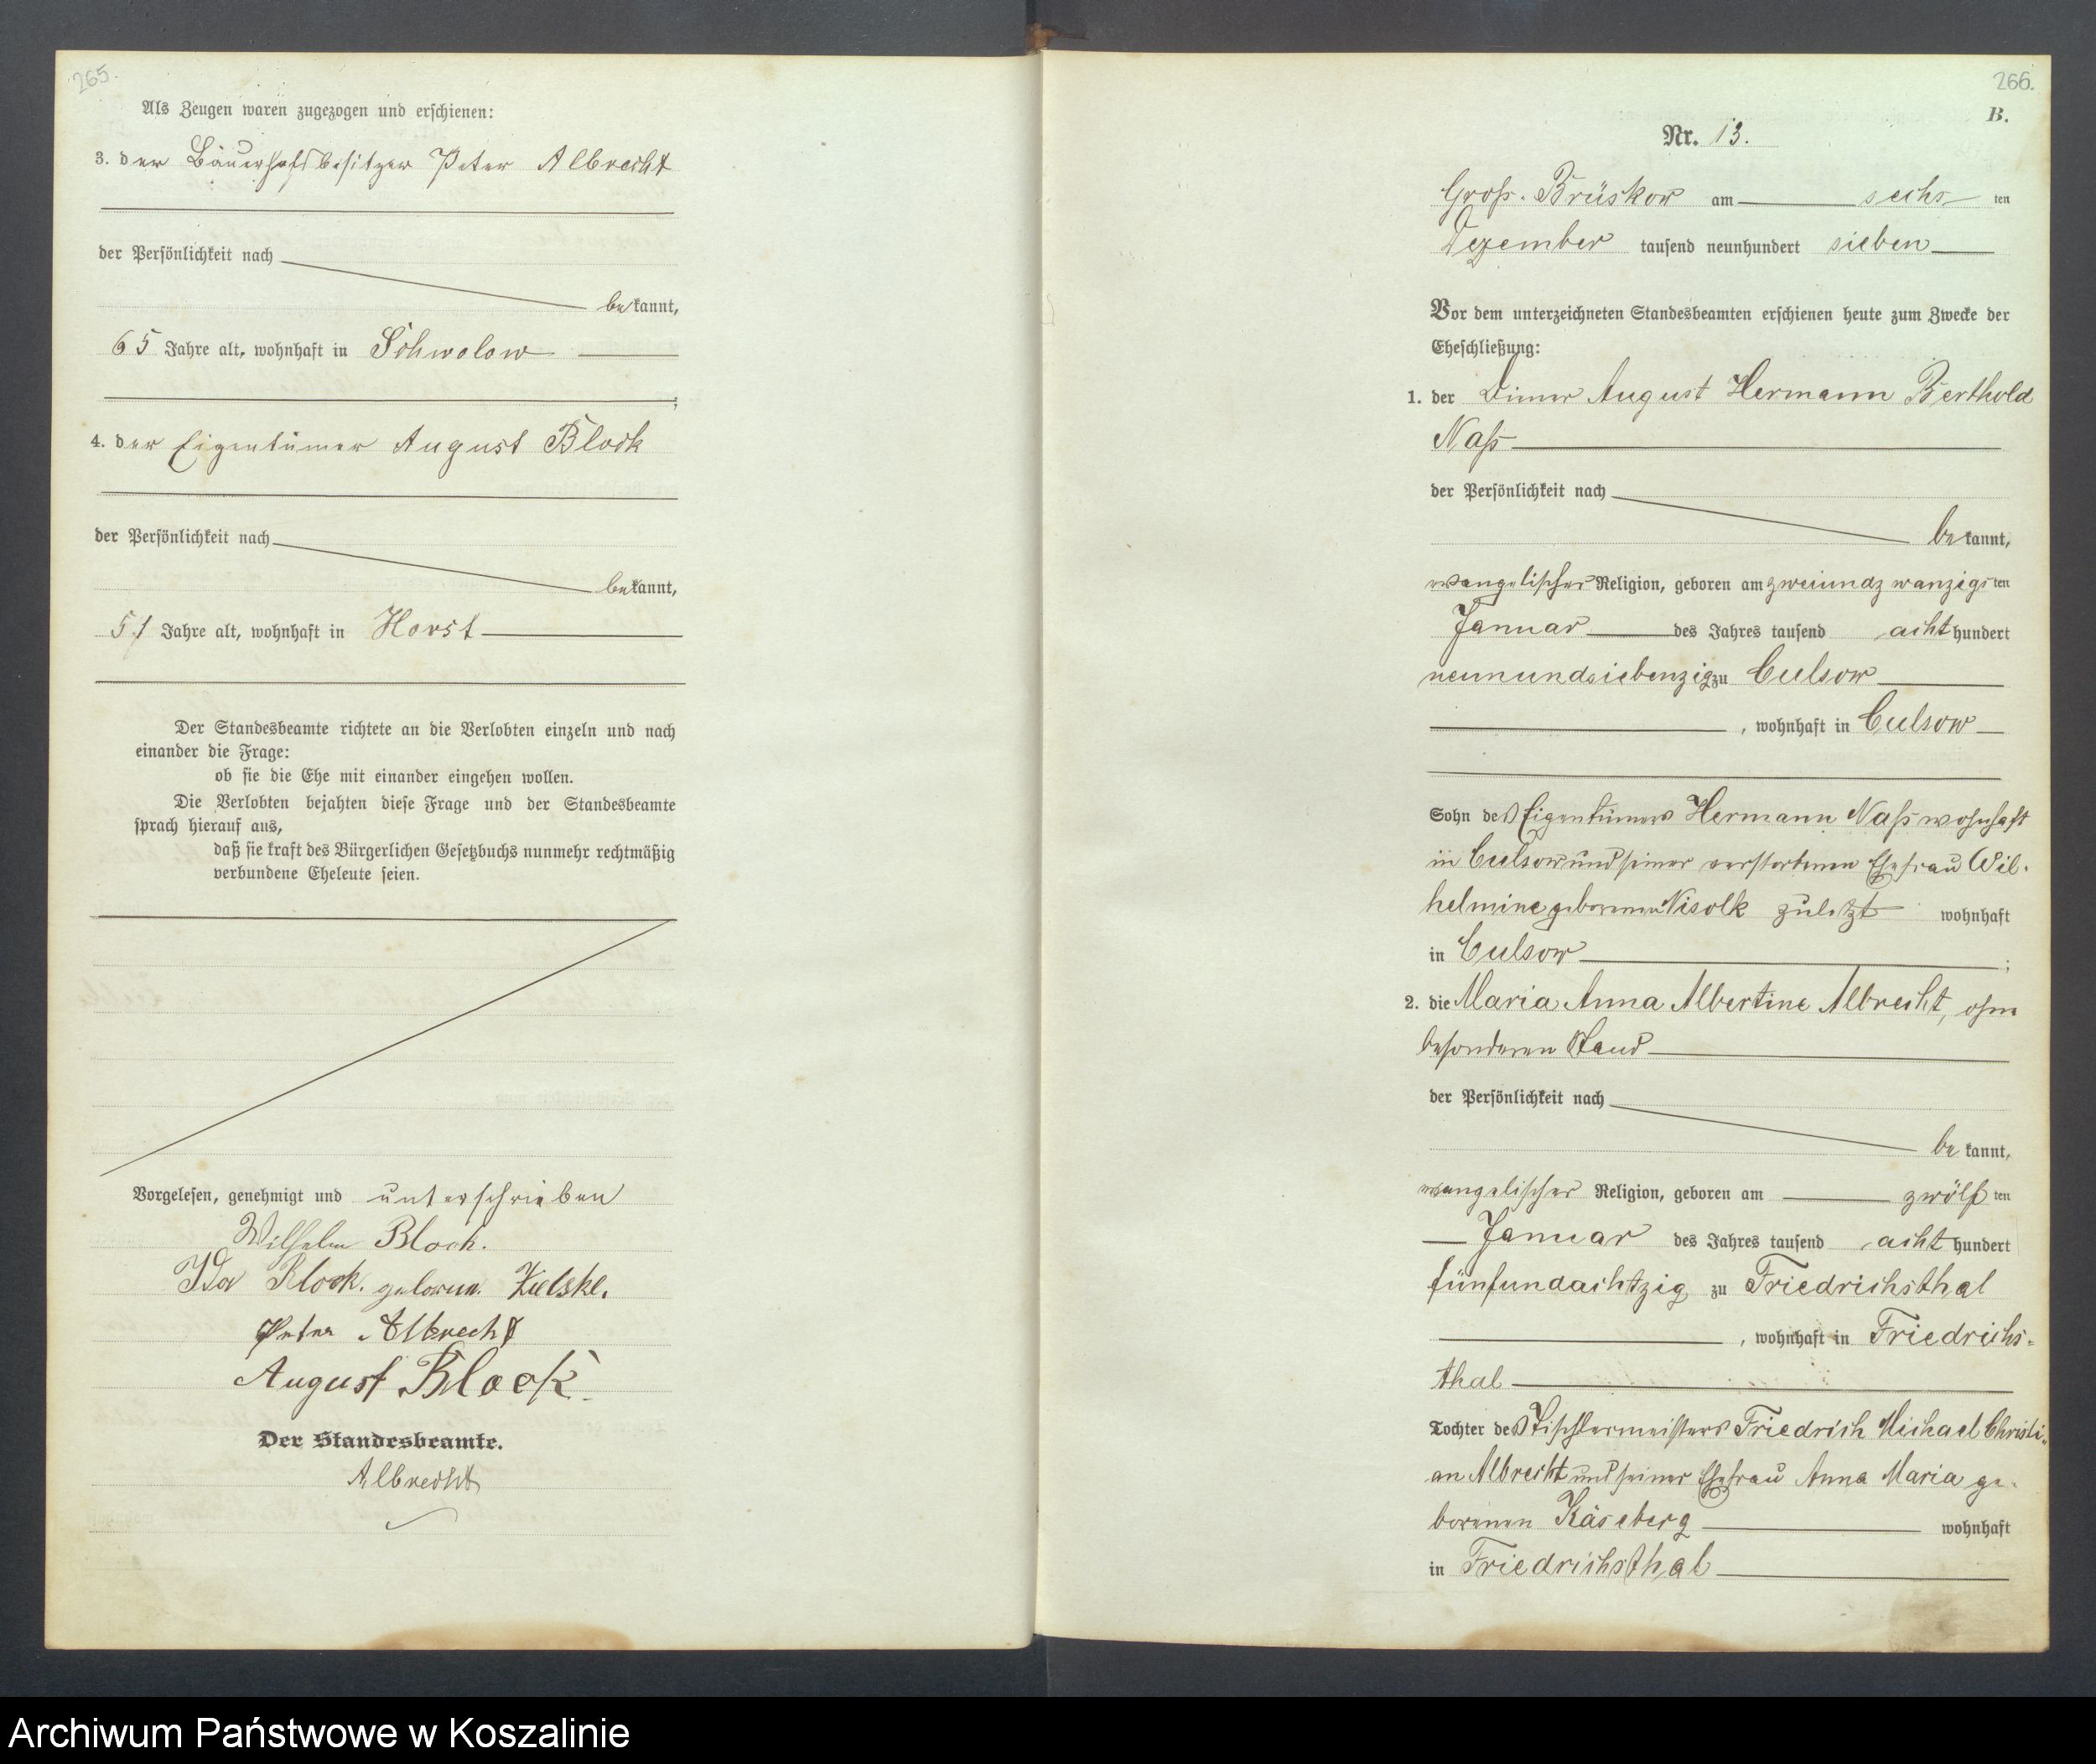 265.
Als Zeugen waren zugezogen und erschienen:
3. der Bauerhofsbesitzer Peter Albrecht
der Persönlichkeit nach
bekannt,
65 Jahre alt, wohnhaft in Schwolow
;
4. der Eigentümer August Block
der Persönlichkeit nach
bekannt,
51 Jahre alt, wohnhaft in Horst
Der Standesbeamte richtete an die Verlobten einzeln und nach
einander die Frage:
ob sie die Ehe mit einander eingehen wollen.
Die Verlobten bejahten diese Frage und der Standesbeamte
sprach hierauf aus,
daß sie kraft des Bürgerlichen Gesetzbuchs nunmehr rechtmäßig
verbundene Eheleute seien.
Vorgelesen, genehmigt und unterschrieben
Wilhelm Block.
Ida Block. geboren.
Peter Albrecht
August Block
Der Standesbeamte.
Albrecht
266.
B.
Nr. 13.
Groß. Brüskow am sechs ten
Dezember tausend neunhundert sieben
Vor dem unterzeichneten Standesbeamten erschienen heute zum Zwecke der
Eheschließung:
1. der Diener August Hermann Berthold
Naß
der Persönlichkeit nach
bekannt,
evangelischer Religion, geboren am zweiundzwanzigsten
Januar des Jahres tausend achthundert
neunundsiebenzig zu Culsow
, wohnhaft in Culsow
Sohn des Eigentümers Hermann Naß wohnhaft
in Culsow und seiner verstorbenen Ehefrau Wil-
helmine geborenen zuletzt wohnhaft
in Culsow ;
2. die Maria Anna Albertine Albrecht, ohne
besonderen Stand
der Persönlichkeit nach
bekannt,
evangelischer Religion, geboren am zwölf ten
Januar des Jahres tausend achthundert
fünfundachtzig zu Friedrichsthal
, wohnhaft in Friedrichs-
thal
Tochter des Tischlermeisters Friedrich Michael Christi-
an Albrecht und seiner Ehefrau Anna Maria ge-
borenen Käseberg wohnhaft
in Friedrichsthal
Archiwum Państwowe w Koszalinie